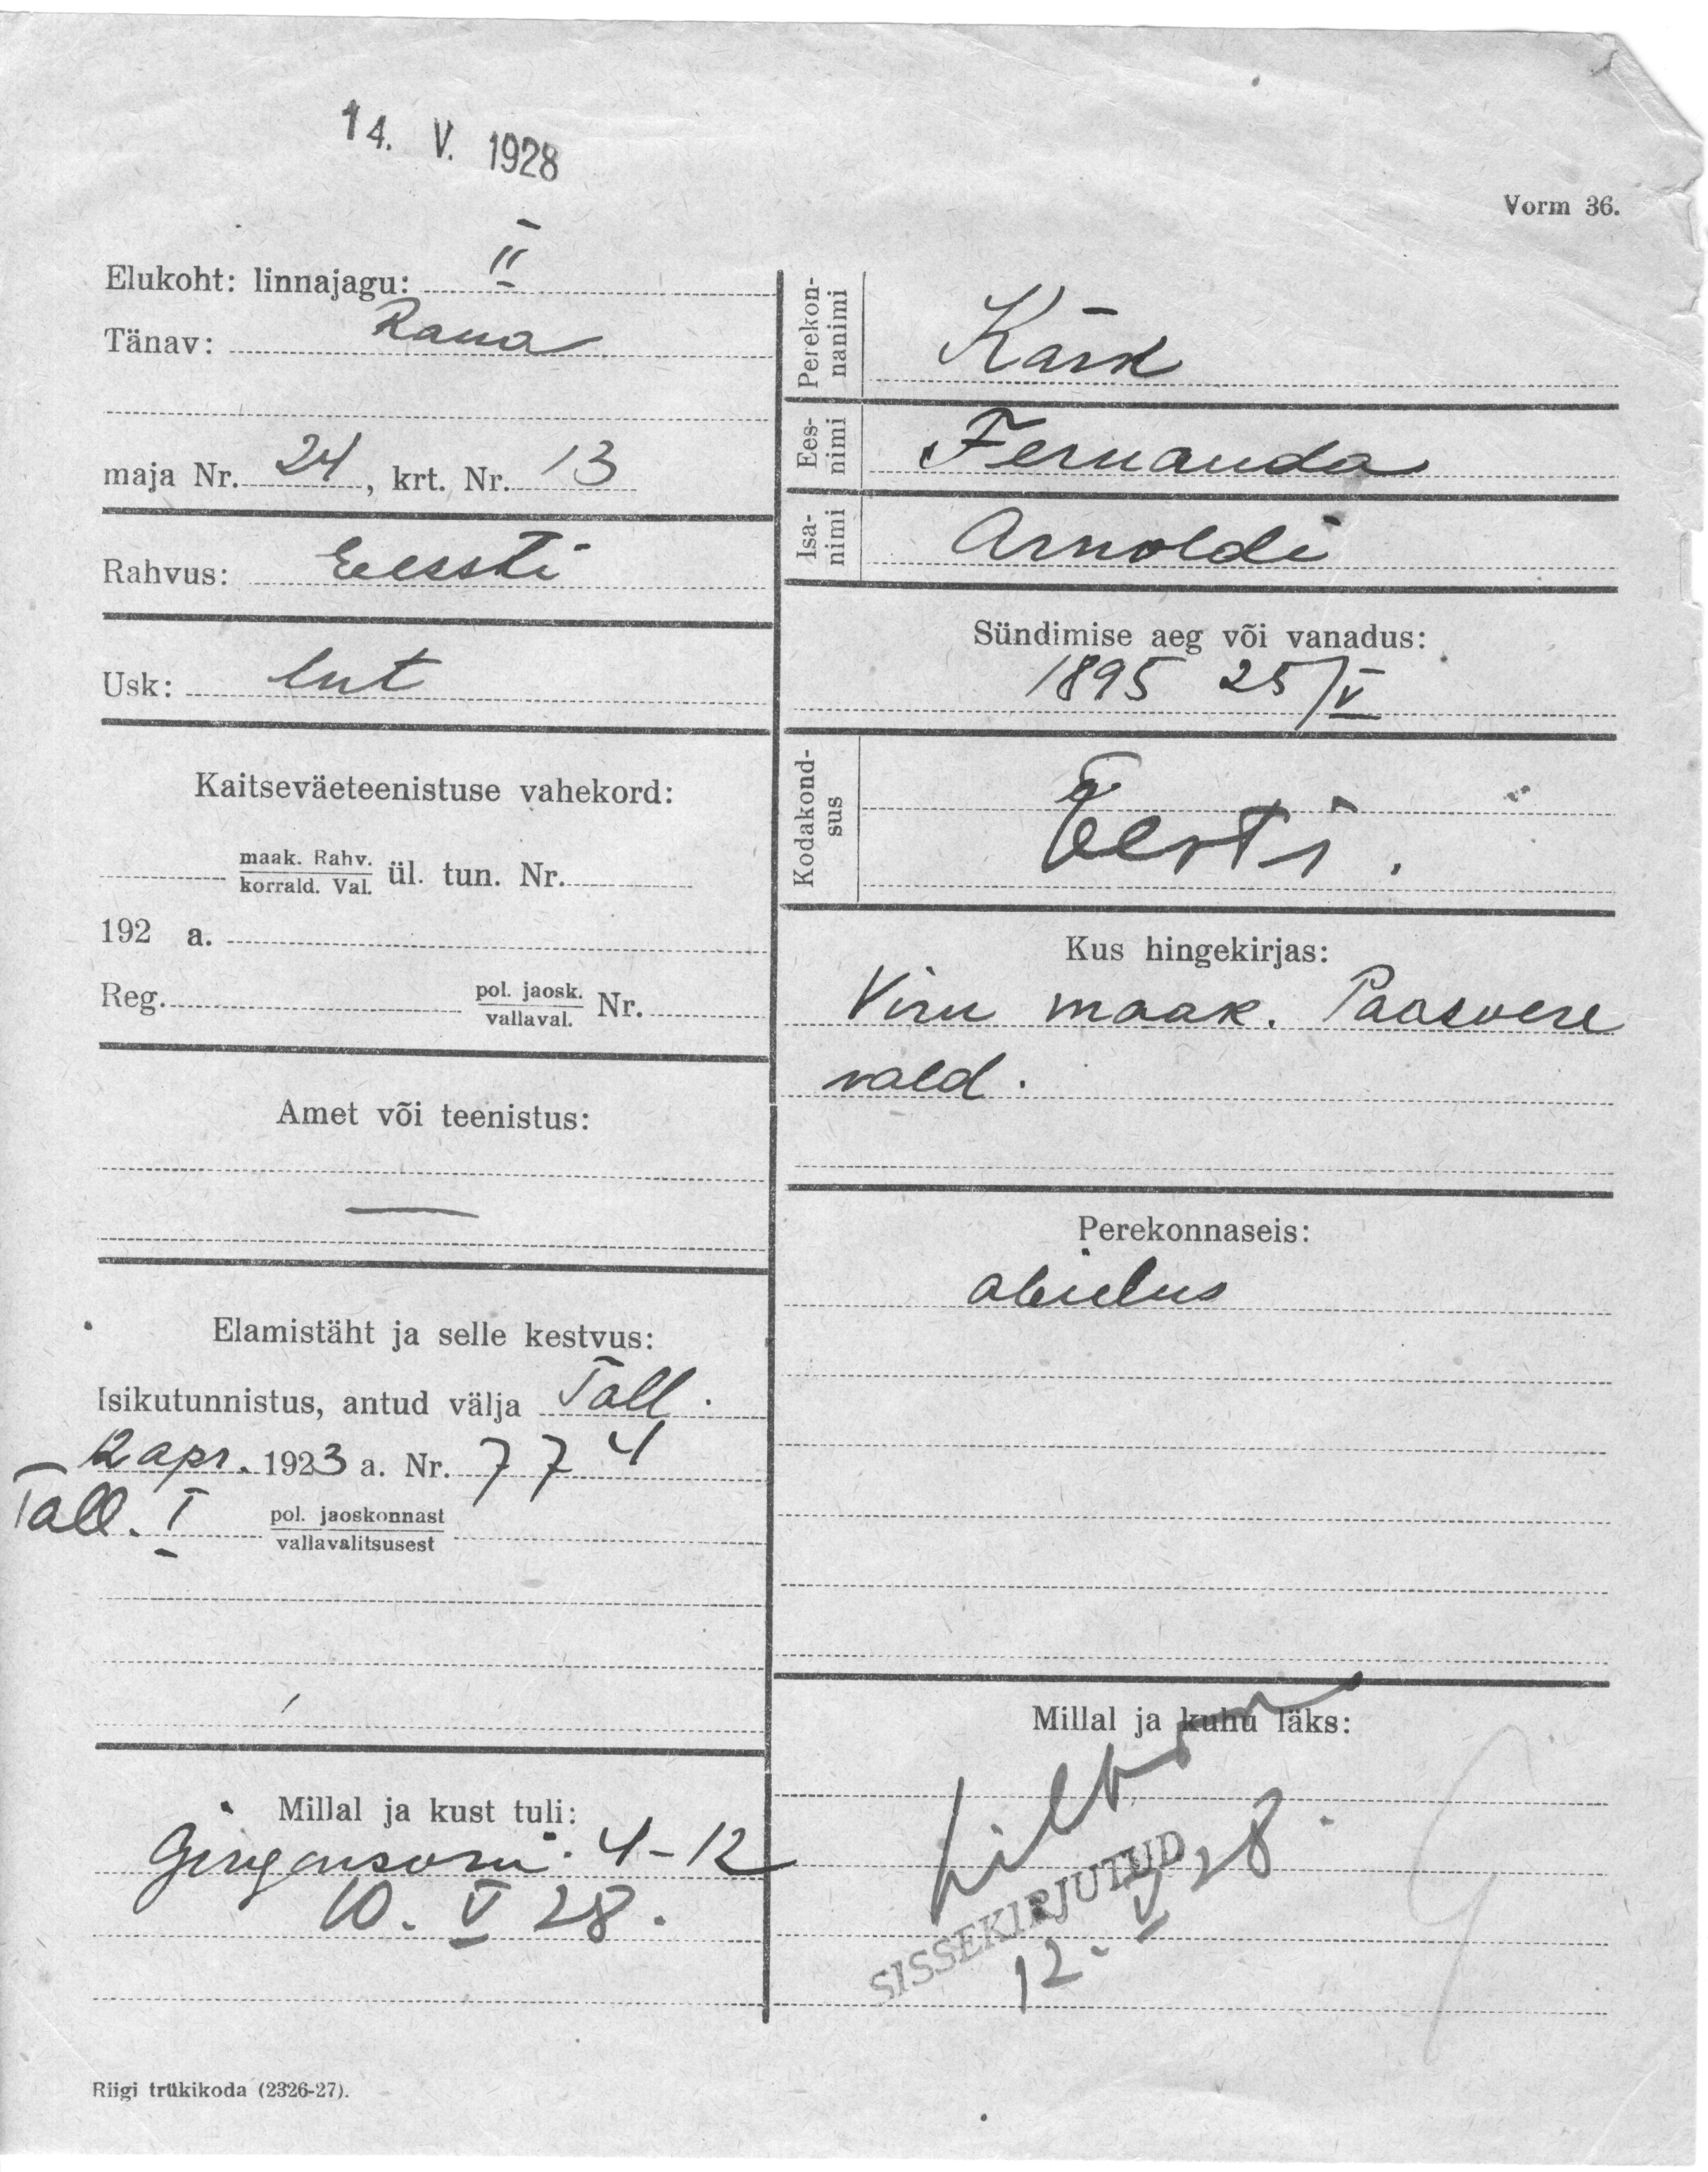 14. V. 1928
Vorm 36.
Elukoht: linnajagu: II
Tänav: Raua
maja Nr. 24, krt. Nr. 13
Rahvus: Eessti
Usk: lut
Kaitseväeteenistuse vahekord:
maak. Rahv.
korrald. Val. ül. tun. Nr.
192 a.
Reg. pol. jaosk.
vallaval. Nr.
Amet või teenistus:
—
Elamistäht ja selle kestvus:
Isikutunnistus, antud välja Tall.
12 apr. 1923 a. Nr. 774
Tall. I pol. jaoskonnast
vallavalitsusest
Millal ja kust tuli:
4-12
10. V 28.
Riigi trükikoda (2326-27).
Perekon-
nanimi
Kärk
Ees-
nimi
Fernanda
Isa-
nimi
Arnoldi
Sündimise aeg või vanadus:
1895 25/V
Kodakond-
sus
Eesti.
Kus hingekirjas:
Viru maak. Paasvere
vald.
Perekonnaseis:
abielus
Millal ja kuhu läks:
SISSEKIRJUTUD
12. V 28.